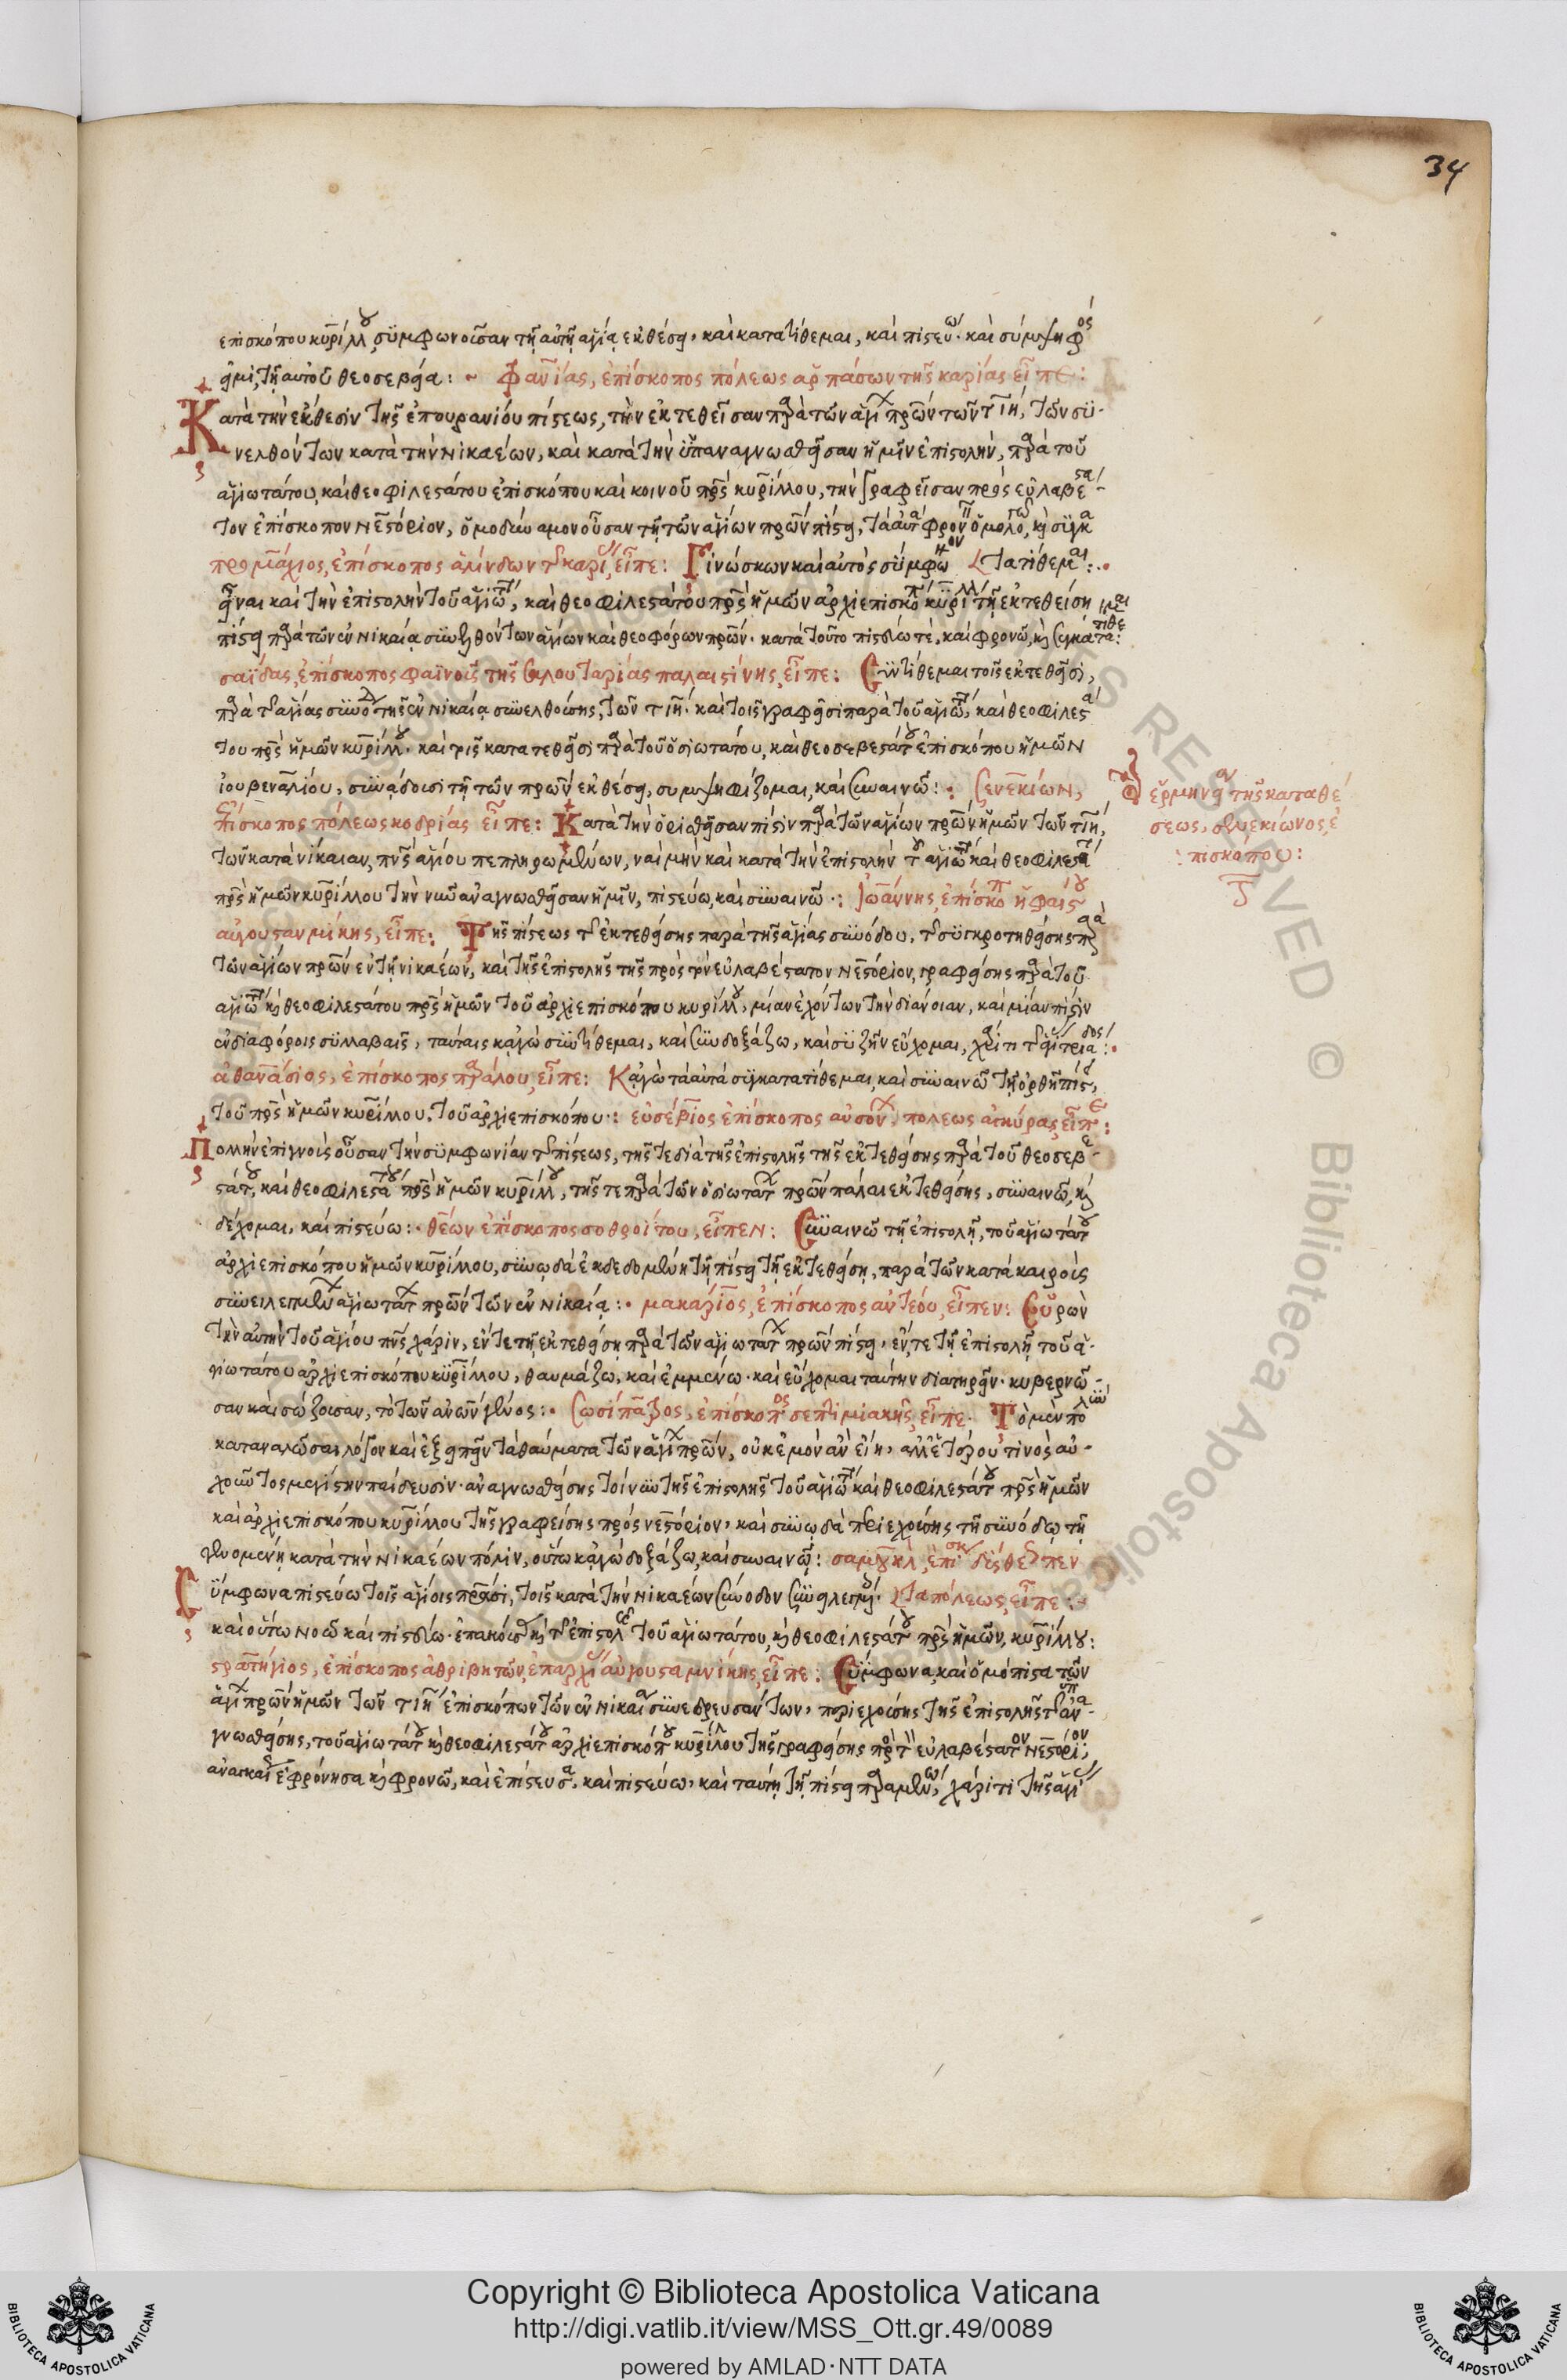 34
επισκόπου κυρίλλου, συμφωνούσαν τῇ αὐτῇ ἁγίᾳ εκθέσει, καὶ κατατίθεμαι, καὶ πιστεύω· καὶ σύμψηφος
εἰμὶ τῇ αὐτοῦ θεοσεβεία: ~ Φανίας, ἐπίσκοπος πόλεως ἁρπάσων τῆς καρίας εἶπε:
Κατὰ τὴν ἔκθεσιν τῆς ἐπουρανίου πίστεως, τὴν ἐκτεθεῖσαν παρὰ τῶν ἁγίων πρων τῶν τιη, τῶν συ-
νελθόντων κατὰ τὴν Νικαέων, καὶ κατὰ τὴν ὑπαναγνωσθεῖσαν ἡμῖν ἐπιστολὴν, παρὰ τοῦ
ἁγιωτάτου, καὶ θεοφιλεστάτου ἐπισκόπου καὶ κοινοῦ πρς κυρίλλου, τὴν γραφεῖσαν πρὸς εὐλαβέστα-
τον ἐπίσκοπον Νεστόριον, ὁμοδιαμονοῦσαν τῇ τῶν ἁγίων πρων πίστει, τὰ αὐτὰ φρονῶν ὁμολογῶ, καὶ συγκα
προμάχιος, ἐπίσκοπος ἀλίνδων τῆς καρίας, εἶπε: Γινώσκων καὶ αὐτὸς σύμφωνον τατίθεμαι:
εἶναι καὶ τὴν ἐπιστολὴν τοῦ ἁγιωτ, καὶ θεοφιλεστάτου πρς ἡμῶν ἀρχιεπισκόπου κυρίλλου τῇ ἐκτεθείση
πίστει παρὰ τῶν ἐν Νικαίᾳ συνελθόντων ἁγίων καὶ θεοφόρων πρων· κατὰ τοῦτο πιστεύω τὲ, καὶ φρονῶ, καὶ συγκατατίθεμαι:
σαΐδας, ἐπίσκοπος φαϊνοῦς τῆς σαλουταρίας παλαιστίνης, εἶπε: Συντίθεμαι τοῖς ἐκτεθεῖσι,
παρὰ τῆς ἁγίας συνόδου τῆς ἐν Νικαίᾳ συνελθούσης, τῶν τιη· καὶ τοῖς γραφεῖσι παρὰ τοῦ ἁγιωτ, καὶ θεοφιλεστά
του πρς ἡμῶν κυρίλλου· καὶ τοῖς κατατεθεῖσι παρὰ τοῦ ὁσιωτάτου, καὶ θεοσεβεστάτου ἐπισκόπου ἡμῶν
ἰουβεναλίου, συνάδουσι τῇ τῶν πρων ἐκθέσει, συμψηφίζομαι, καὶ συναινῶ: Σενεκίων,
ἐπίσκοπος πόλεως κοδρίας εἶπε: Κατὰ τὴν ὁρισθεῖσαν πίστιν παρὰ τῶν ἁγίων πρων ἡμῶν τῶν τιη,
τῶν κατὰ νίκαιαν, πνς ἁγίου πεπληρωμένων, ναὶ μὴν καὶ κατὰ τὴν ἐπιστολὴν τοῦ ἁγιωτ καὶ θεοφιλεστ
πρς ἡμῶν κυρίλλου τὴν νῦν ἀναγνωσθεῖσαν ἡμῖν, πιστεύω, καὶ συναινῶ: Ἰωάννης, ἐπίσκοπ ἡφαίστου
αὐγουσταμνίκης, εἶπε: Τῆς πίστεως τῆς ἐκτεθείσης παρὰ τῆς ἁγίας συνόδου, τῆς συγκροτηθείσης παρὰ
τῶν ἁγίων πρων ἐν τῇ νικαέων, καὶ τῆς ἐπιστολῆς τῆς πρὸς τὸν εὐλαβέστατον Νεστόριον, γραφείσης παρὰ τοῦ
ἁγιωτ καὶ θεοφιλεστάτου πρς ἡμῶν τοῦ ἀρχιεπισκόπου κυρίλλου, μίαν ἐχόντων τὴν διάνοιαν, καὶ μίαν πίστιν
ἐν διαφόροις συλλαβαῖς, ταύταις κἀγὼ συντίθεμαι, καὶ συνδοξάζω, καὶ συζῆν εὔχομαι, χάριτι τῆς ἁγίας τριάδος:
ἀθανάσιος, ἐπίσκοπος παράλου, εἶπε: Κἀγὼ τὰ αὐτὰ συγκατατίθεμαι, καὶ συναινῶ τῇ ὀρθῇ πίστει,
τοῦ πρς ἡμῶν κυρίλλου, τοῦ ἀρχιεπισκόπου: εὐσέβιος ἐπίσκοπος ἀσπόνων πόλεως ἀγκύρας, εἶπε:
Πολλὴν ἐπιγνοὺς οὖσαν τὴν συμφωνίαν τῆς πίστεως, τῆς τε διὰ τῆς ἐπιστολῆς τῆς ἐκτεθείσης παρὰ τοῦ θεοσεβε-
στάτου, καὶ θεοφιλεστάτου πρς ἡμῶν κυρίλλου, τῆς τε παρὰ τῶν ὁσιωτάτων πρων πάλαι ἐκτεθείσης, συναινῶ, καὶ
δέχομαι, καὶ πιστεύω: θέων ἐπίσκοπος σεθροίτου, εἶπεν: Συναινῶ τῇ ἐπιστολῇ, τοῦ ἁγιωτάτου
ἀρχιεπισκόπου ἡμῶν κυρίλλου, συνῳδὰ ἐκδεδομένη τῇ πίστει τῇ ἐκτεθείση, παρὰ τῶν κατὰ καιροὺς
συνειλεγμένων ἁγιωτάτων πρων τῶν ἐν Νικαίᾳ: μακάριος, ἐπίσκοπος ἀντέου, εἶπεν: Εὑρὼν
τὴν αὐτὴν τοῦ ἁγίου πνς χάριν, ἔν τε τῇ ἐκτεθείση παρὰ τῶν ἁγιωτάτων πρων πίστει, ἔν τε τῇ ἐπιστολῇ τοῦ ἁ-
γιωτάτου ἀρχιεπισκόπου κυρίλλου, θαυμάζω, καὶ ἐμμένω· καὶ εὔχομαι ταύτην διατηρεῖν· κυβερνῶ-
σαν καὶ σώζουσαν, τὸ τῶν ἀνων γένος: Σωσίπατρος, ἐπίσκοπος σεπτιμιακῆς, εἶπε· Τὸ μὲν πολὺν
καταναλῶσαι λόγον καὶ ἐξειπεῖν τὰ θαύματα τῶν ἁγίων πρων, οὐκ ἐμὸν ἂν εἴη, ἀλλ' ἑτέρου τινὸς αὐ-
χοῦντος μεγίστην παίδευσιν· ἀναγνωσθείσης τοίνυν τῆς ἐπιστολῆς τοῦ ἁγιωτ καὶ θεοφιλεστάτου πρς ἡμῶν
καὶ ἀρχιεπισκόπου κυρίλλου τῆς γραφείσης πρὸς νεστόριον, καὶ συνῳδὰ περιεχούσης τῇ συνόδῳ τῇ
γενομένῃ κατὰ τὴν Νικαέων πόλιν, οὕτω κἀγὼ δοξάζω, καὶ συναινῶ:
Σύμφωνα πιστεύω τοῖς ἁγίοις πατράσι, τοῖς κατὰ τὴν Νικαέων σύνοδον συνειλεγμένοις· ταπόλεως, εἶπε:
καὶ οὕτω νοῶ καὶ πιστεύω· ἐπακούσας καὶ τῆς ἐπιστολῆς τοῦ ἁγιωτάτου, καὶ θεοφιλεστάτου πρς ἡμῶν, κυρίλλου:
στρατήγιος, ἐπίσκοπος ἀθριβητῶν, ἐπαρχίας αὐγουσταμνίκης, εἶπε: Σύμφωνα, καὶ ὁμόπιστα τῶν
ἁγίων πρων ἡμῶν τῶν τιη ἐπισκόπων τῶν ἐν Νικαία συνεδρευσάντων, περιεχούσης τῆς ἐπιστολῆς τῆς ὑπανα-
γνωσθείσης, τοῦ ἁγιωτάτου καὶ θεοφιλεστάτου ἀρχιεπισκόπου κυρίλλου τῆς γραφείσης πρὸς τὸν εὐλαβέστατον Νεστόριον,
ἐφρόνησα καὶ φρονῶ, καὶ ἐπίστευσα, καὶ πιστεύω, καὶ ταύτῃ τῇ πίστει παραμένω, χάριτι τῆς ἁγίας
ἑρμηνεία τῆς καταθέ
σεως, σενεκίωνος, ἐ
πισκόπου:
Copyright © Biblioteca Apostolica Vaticana
http://digi.vatlib.it/view/MSS_Ott.gr.49/0089
powered by AMLAD·NTT DATA
BIBLIOTECA APOSTOLICA VATICANA
BIBLIOTECA APOSTOLICA VATICANA